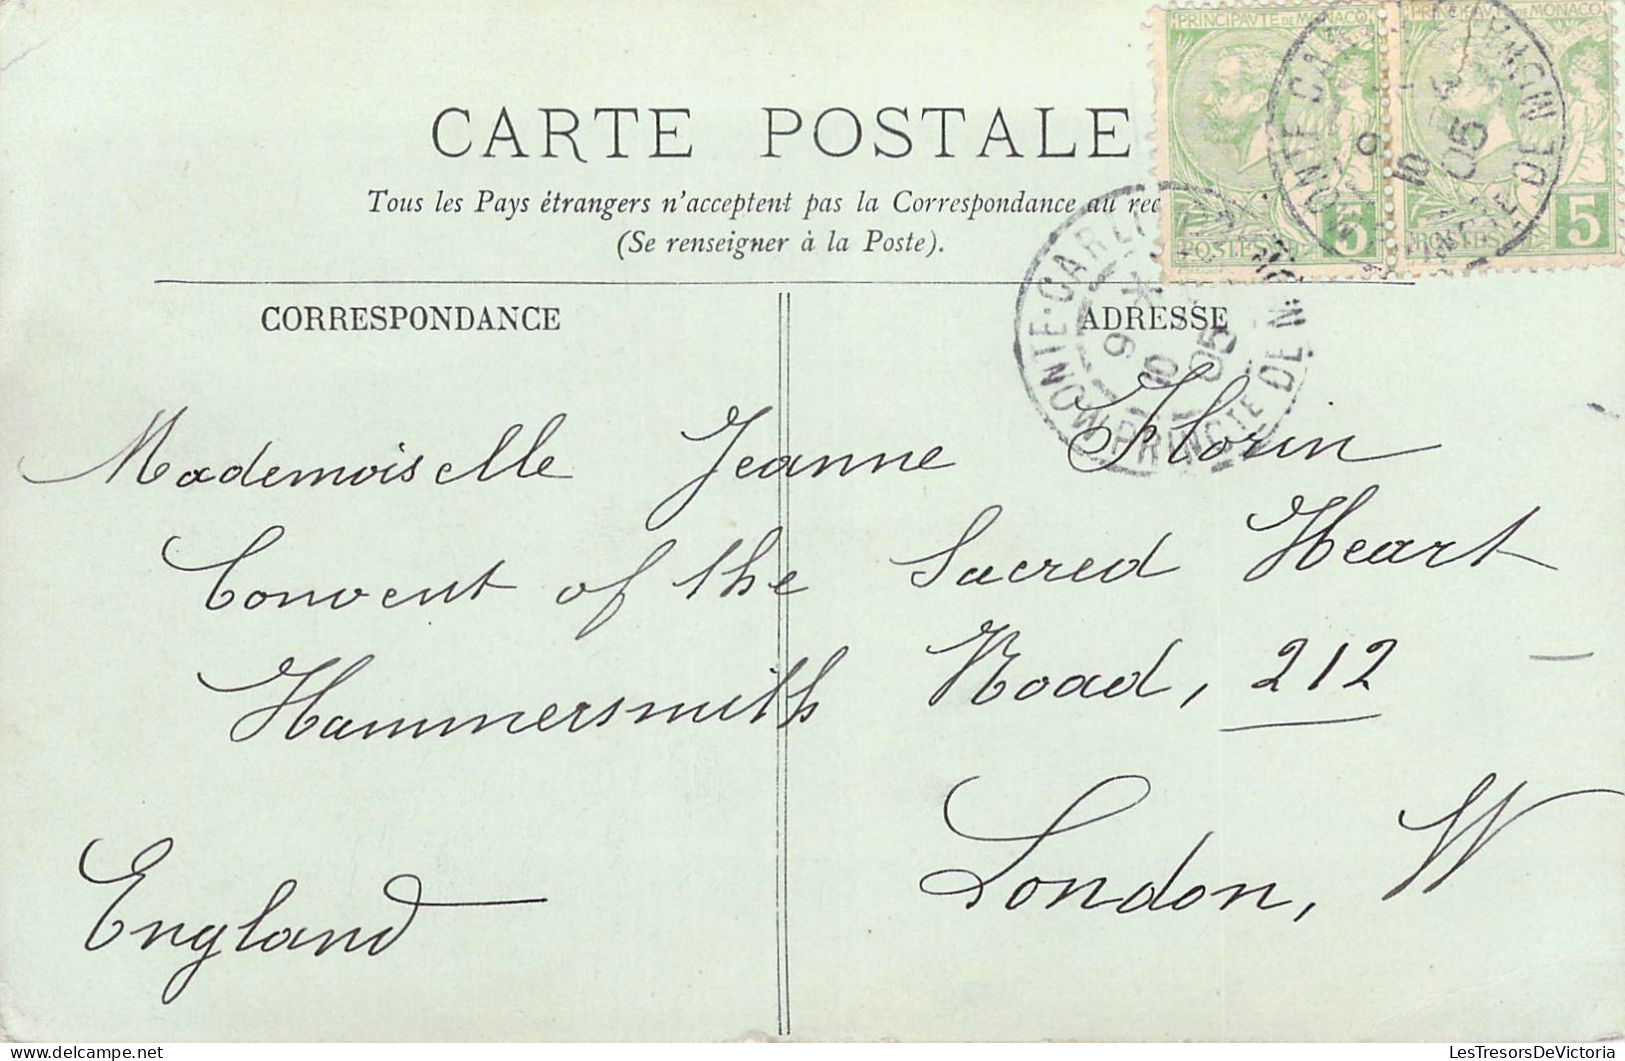 PRINCIPAUTE DE MONACO
PRINCIPAUTE DE MONACO
CARTE POSTALE
Tous les Pays étrangers n'acceptent pas la Correspondance au
(Se renseigner à la Poste).
5
POSTES
5
POSTES
MONTE-CARLO
9
10
05
PRINCTE DE
MONTE
9
10
05
PRINCTE DE
CORRESPONDANCE
ADRESSE
Mademoiselle Jeanne Florin
Convent of the Sacred Heart
Hammersmith Road, 212
England London, W
LesTresorsDeVictoria